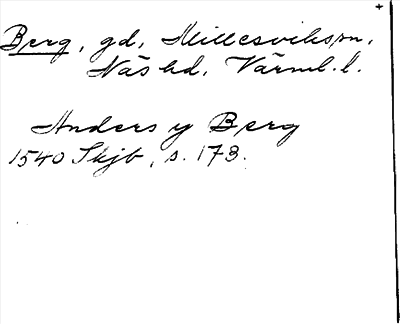 Berg, gd, Millesvikspn,
Näs hd, Värml. l.
Anders y Berg
1540 Skjb, s. 173.